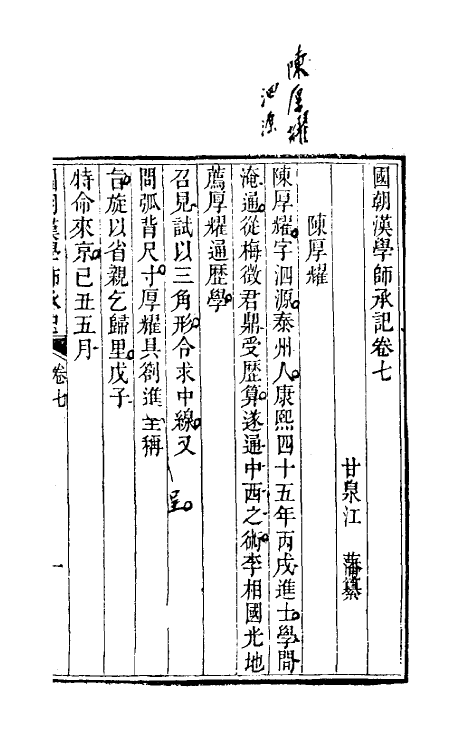 陳厚耀
泗源
國朝漢學師承記卷七
甘泉江藩纂
陳厚耀
陳厚耀字泗源泰州人康熙四十五年丙戌進士學問
淹通從梅徵君鼎受歴算遂通中西之術李相國光地
薦厚耀通歴學
召見試以三角形令求中線又
問弧背尺寸厚耀具劄進呈稱
旨旋以省親乞歸里戊子
特命來京己丑五月
國朝漢學師承記
卷七
一